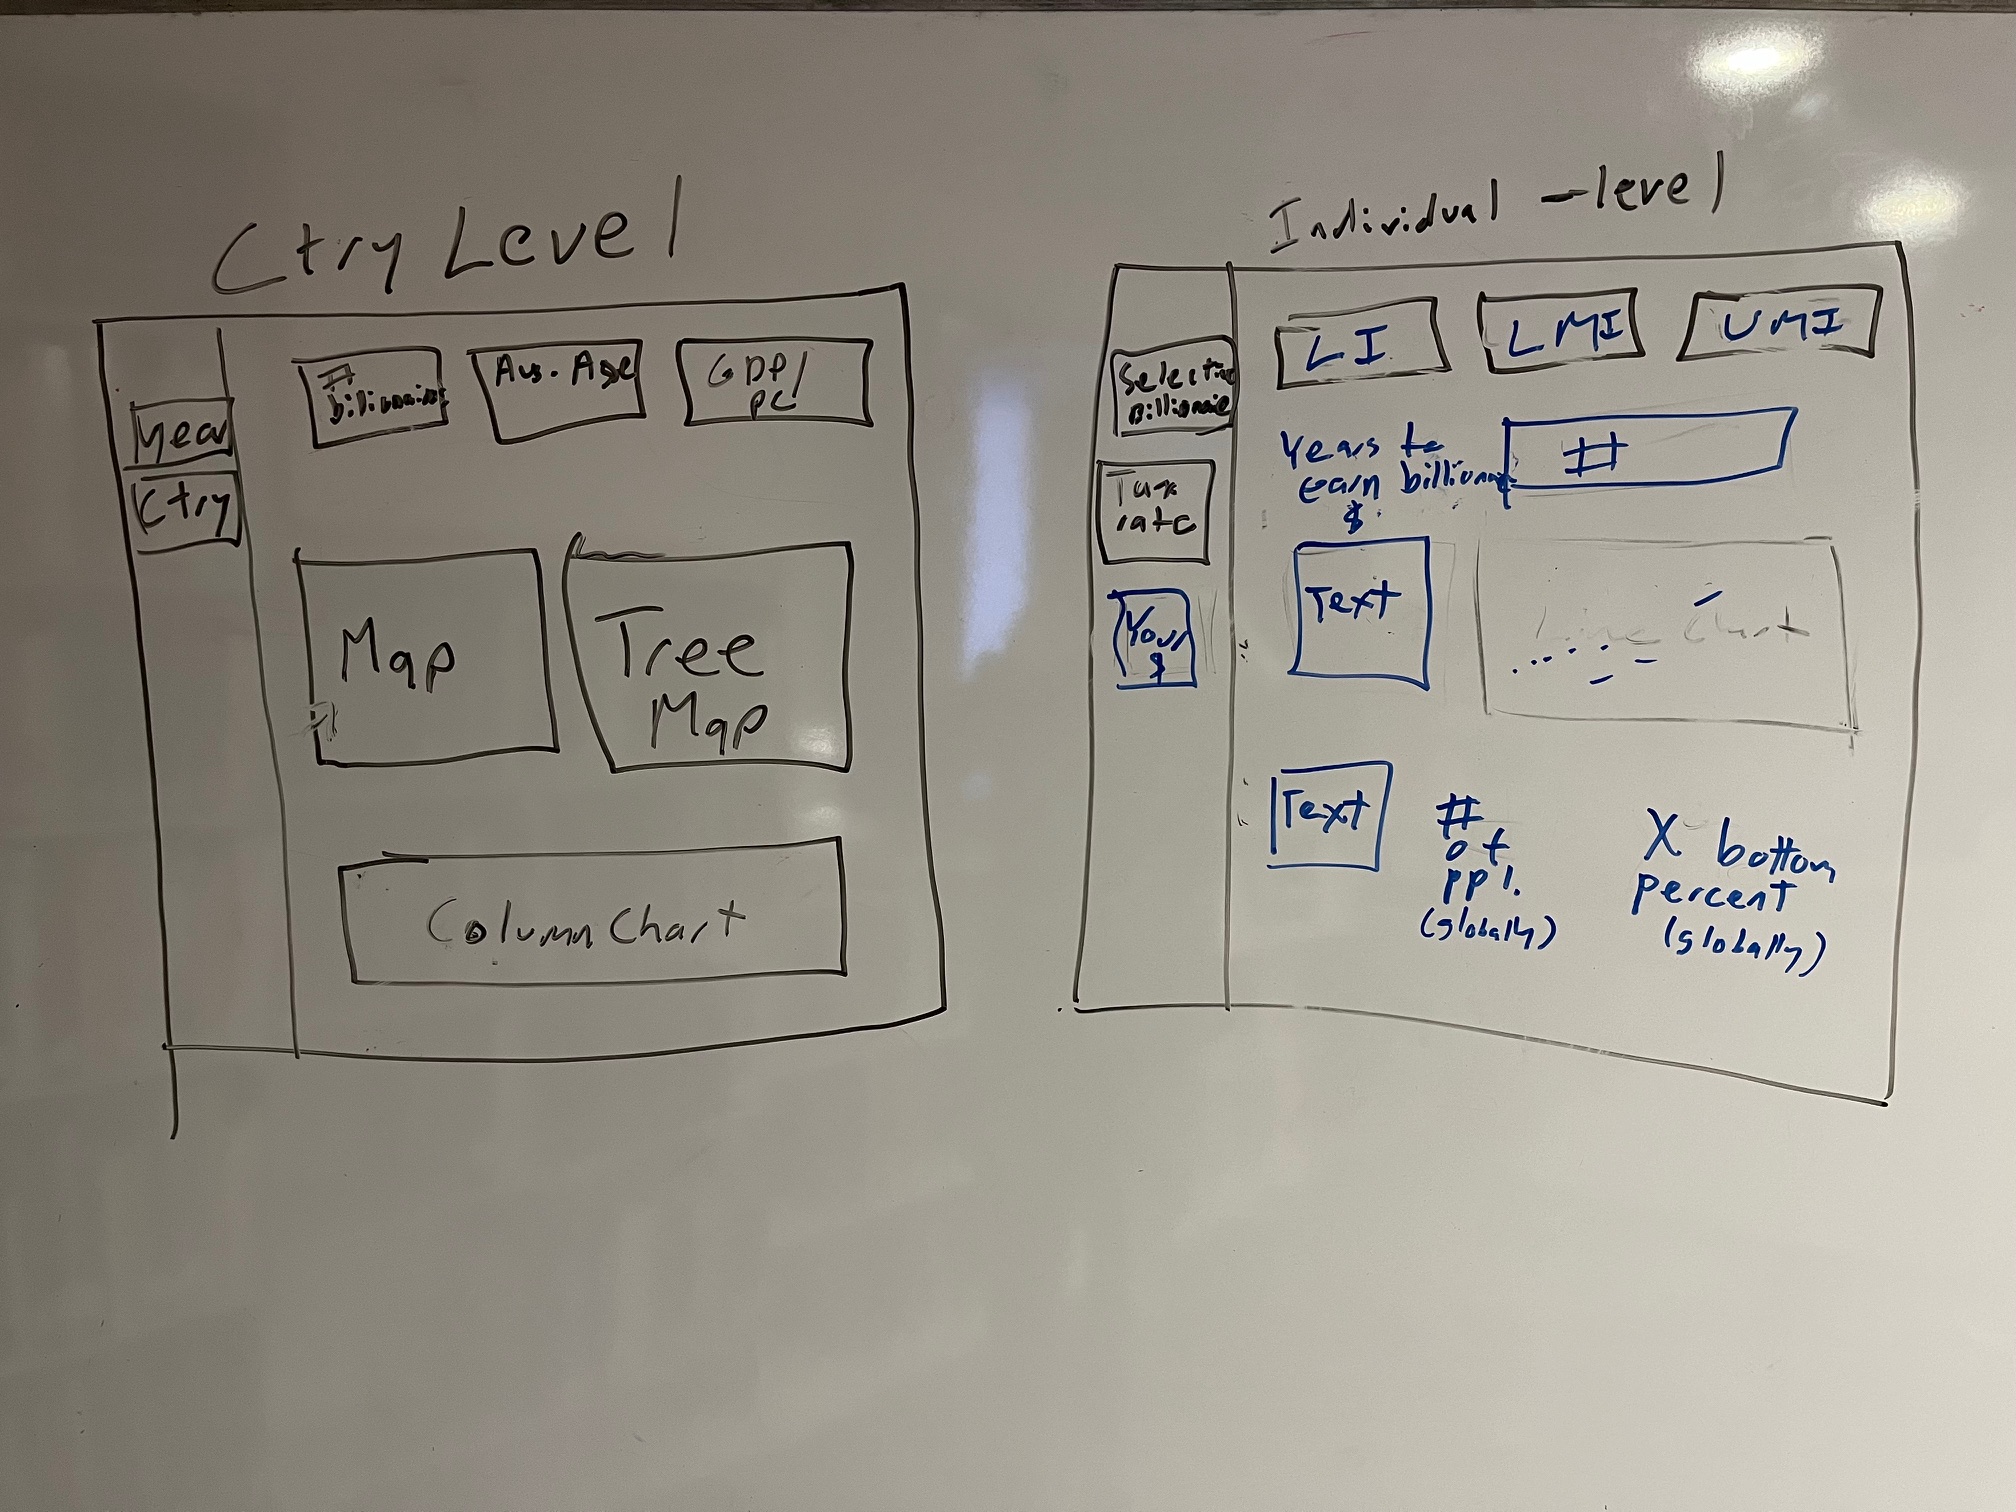 Ctry Level
Year
Ctry
#
billionaires
Avg. Age
GDP/
PC
Map
Tree
Map
Column Chart
Individual - level
Billionaire
Tax
rate
Your
$
LI
LMI
UMI
Years to
earn billionaire
$
#
Text
Line Chart
Text
#
of
ppl.
(globally)
X bottom
percent
(globally)